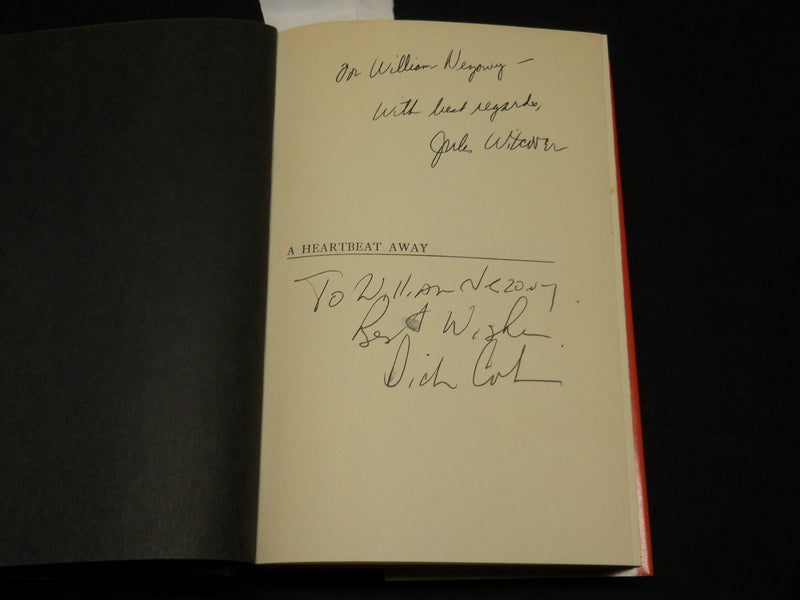 For William Nezowy —
With best regards,
Jules Witcover
A HEARTBEAT AWAY
To William Nezowy.
Best Wishes
Dick Cohen